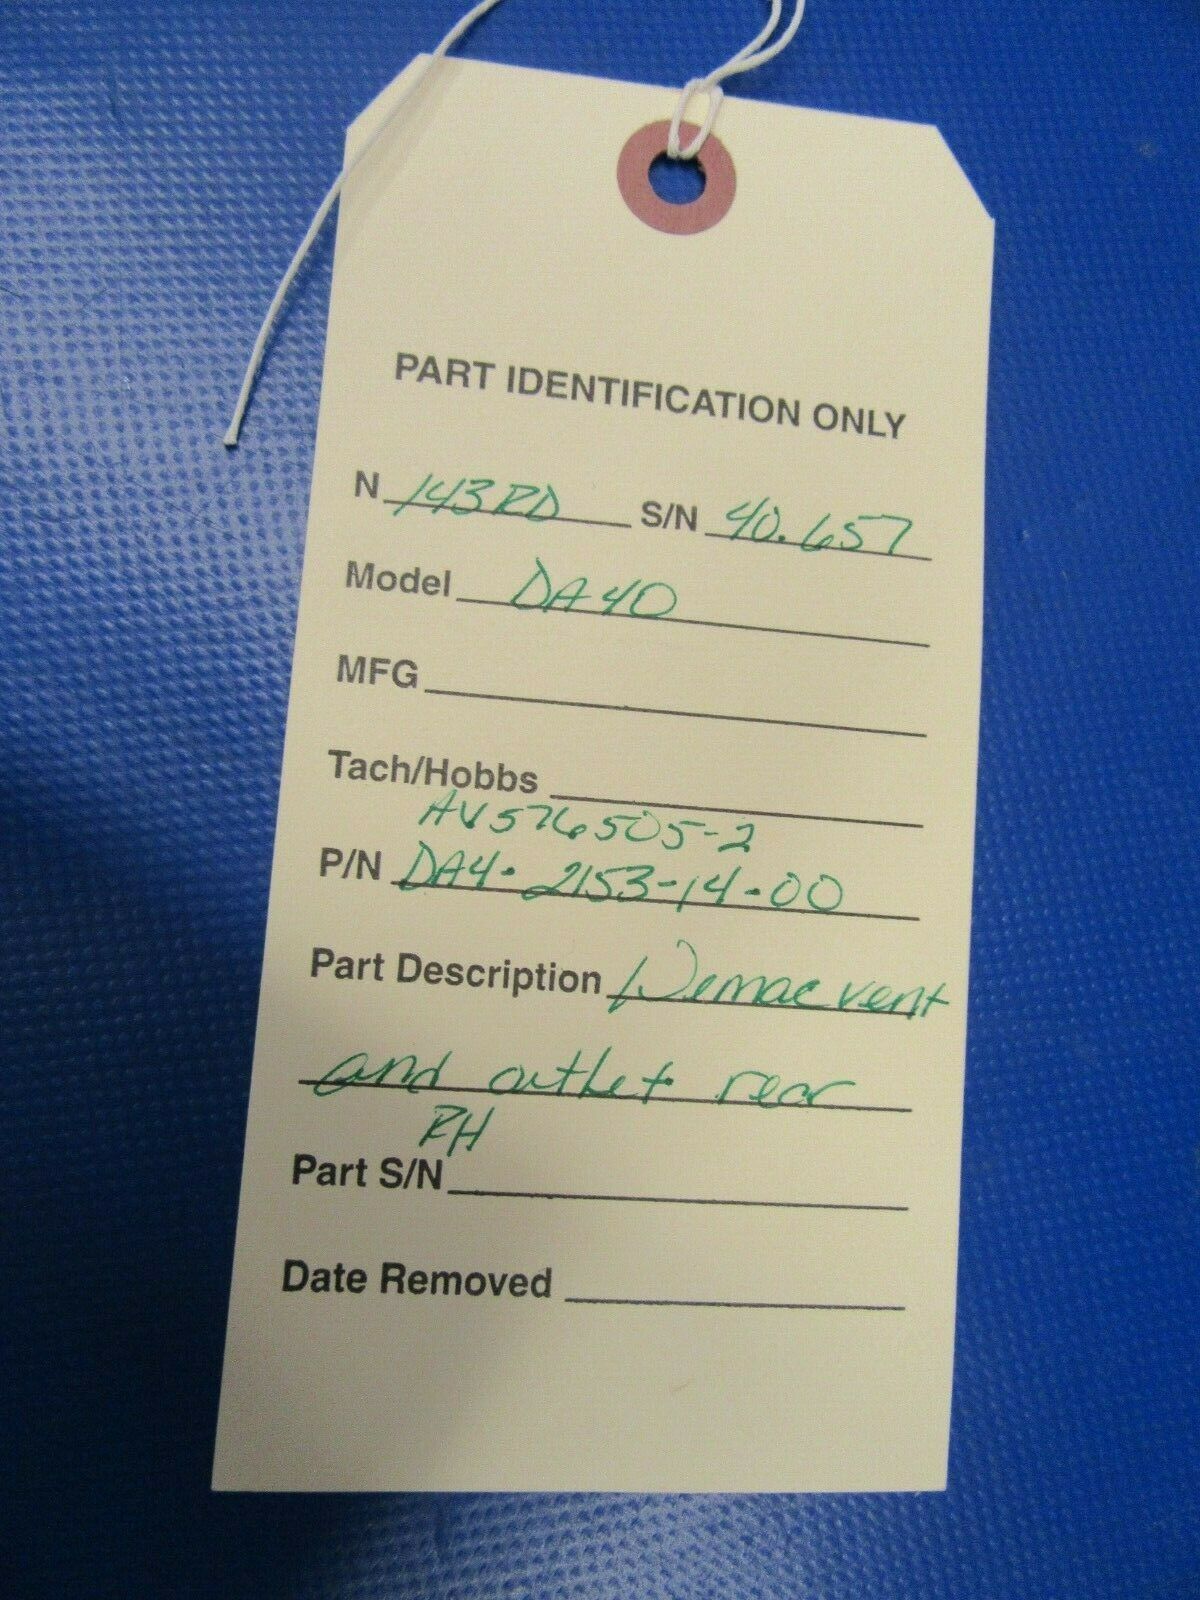 PART IDENTIFICATION ONLY
N 143RD S/N 40.657
Model DA40
MFG
Tach/Hobbs
AV576505-2
P/N DA4-2153-14-00
Part Description Wemac vent
and outlet rear
RH
Part S/N
Date Removed